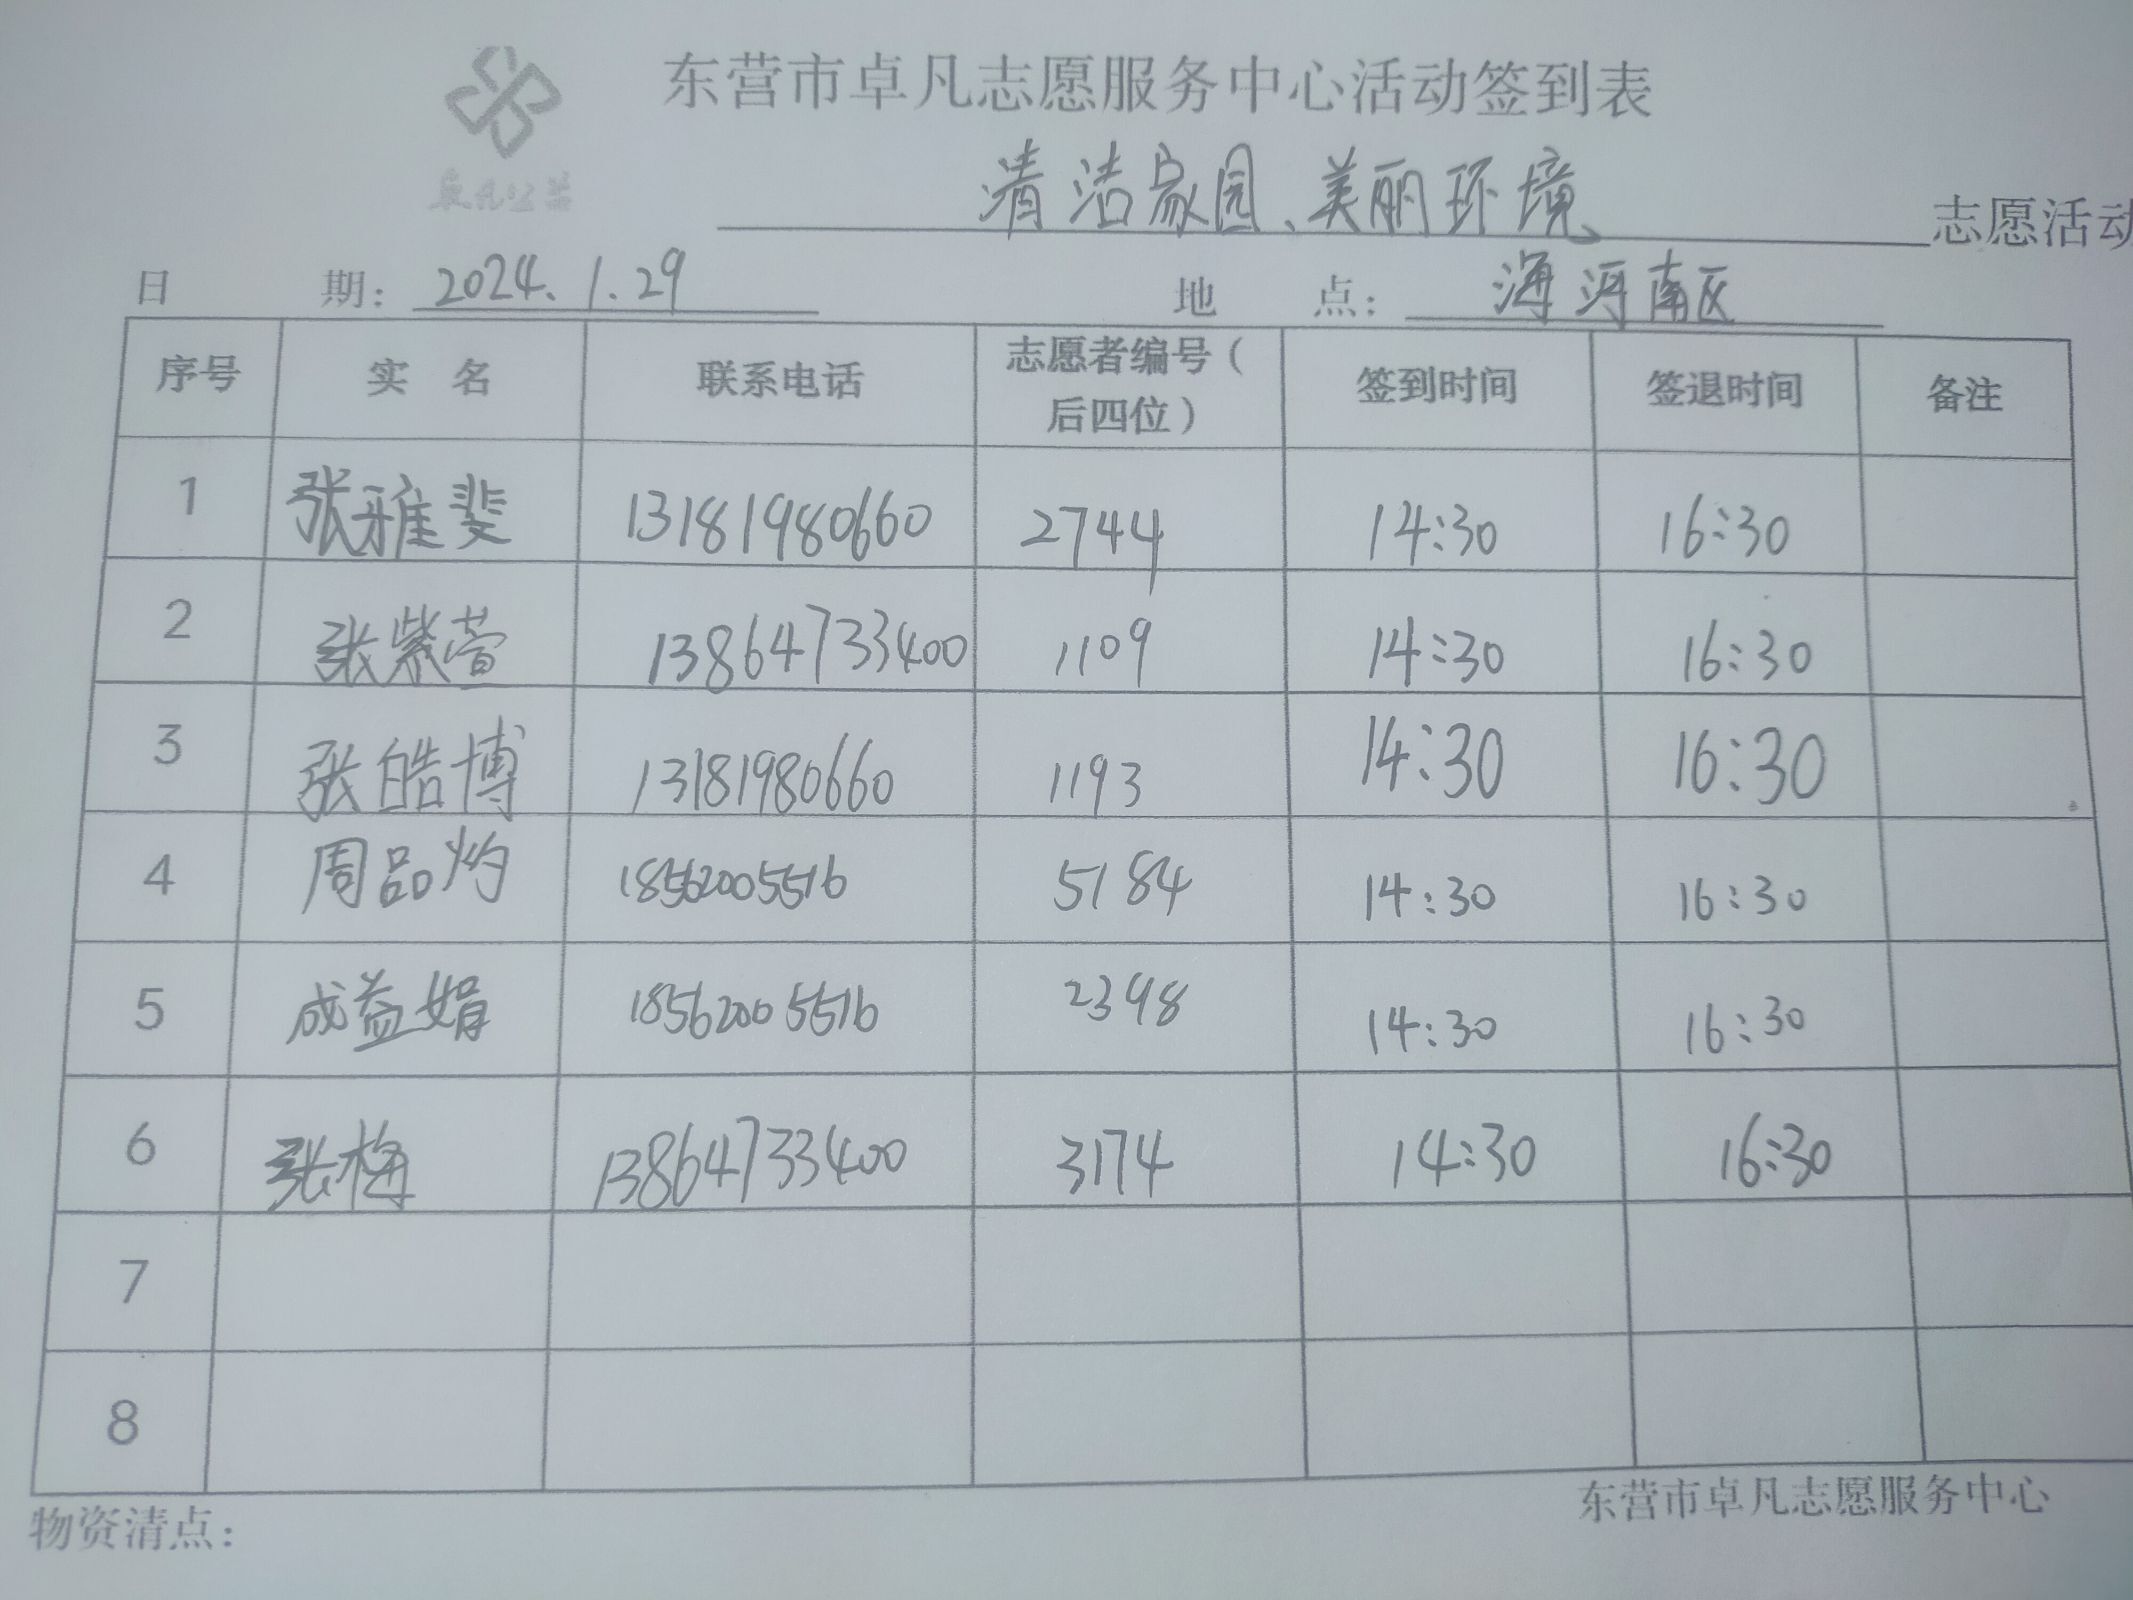 东营市卓凡志愿服务中心活动签到表
卓凡公益
清洁家园、美丽环境 志愿活动
日 期: 2024.1.29 地 点: 海河南区
序号 实 名 联系电话 志愿者编号(后四位) 签到时间 签退时间 备注
1 张雅斐 13181980660 2744 14:30 16:30
2 张紫萱 13864733400 1109 14:30 16:30
3 张皓博 13181980660 1193 14:30 16:30
4 周品灼 18562005516 5184 14:30 16:30
5 成益娟 18562005516 2398 14:30 16:30
6 张梅 13864733400 3174 14:30 16:30
7
8
物资清点: 东营市卓凡志愿服务中心